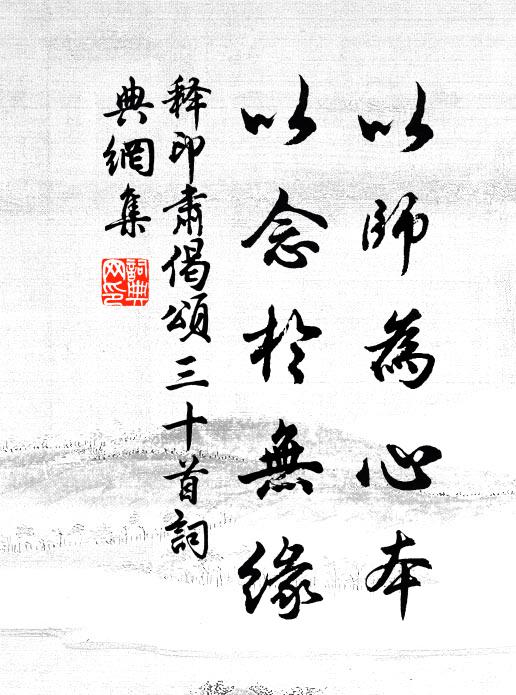 以師為心本
以念於無緣
释印肃偈頌三十首詞
典網集
詞典
网印